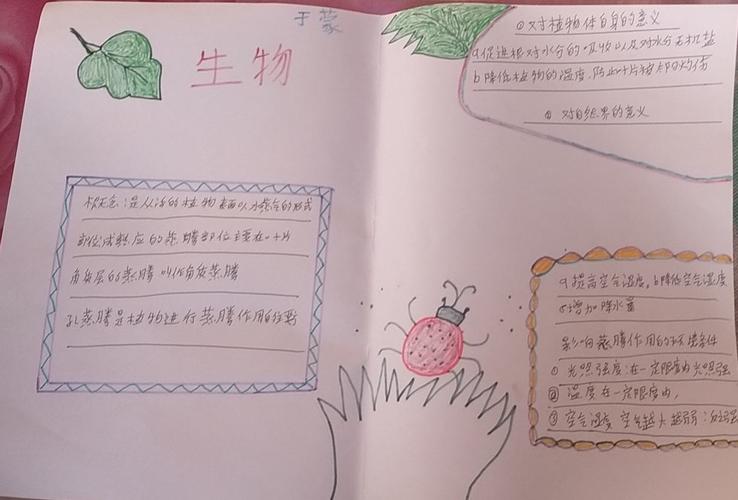 于蒙
生物
概念:是从活的植物表面以水蒸气的形式
部位成熟应的蒸腾部位主要在叶片
角质层的蒸腾叫作角质蒸腾
孔蒸腾是植物进行蒸腾作用的
①对植物体自身的意义
a促进根对水分的吸收以及对水分无机盐
b降低植物的温度.防止叶片被灼伤
② 对自然界的意义
a提高空气湿度,b降低空气温度
c增加降水量
影响蒸腾作用的环境条件
① 光照强度:在一定限度内光照强
② 温度在一定限度内,
③ 空气湿度 空气越大越弱: